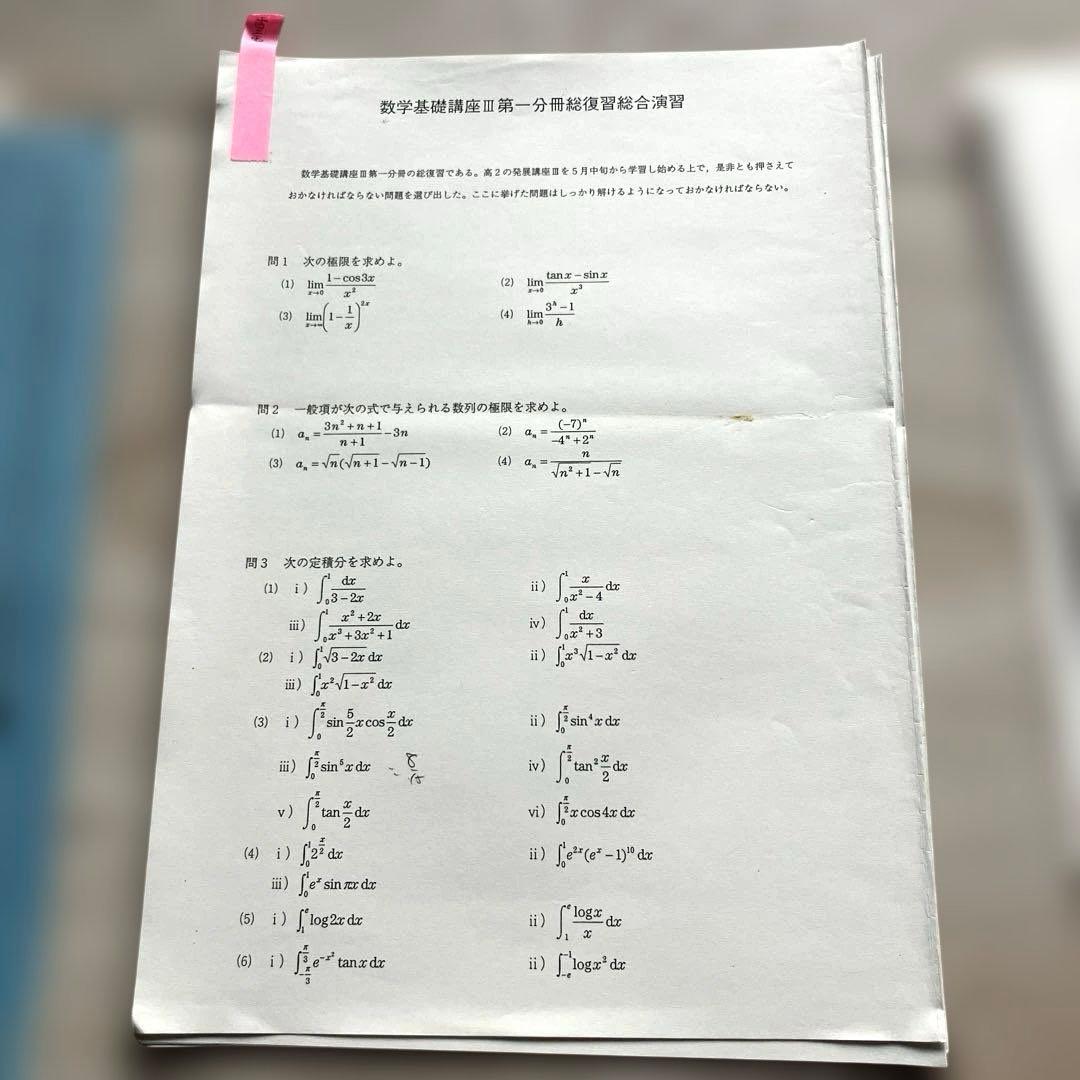 数学基礎講座Ⅲ第一分冊総復習総合演習
数学基礎講座Ⅲ第一分冊の総復習である。高2の発展講座Ⅲを5月中旬から学習し始める上で，是非とも押さえて
おかなければならない問題を選び出した。ここに挙げた問題はしっかり解けるようになっておかなければならない。
問1 次の極限を求めよ。
(1) lim_{x→0} (1−cos3x)/x² (2) lim_{x→0} (tanx−sinx)/x³
(3) lim_{x→∞} (1−1/x)^{2x} (4) lim_{h→0} (3^h−1)/h
問2 一般項が次の式で与えられる数列の極限を求めよ。
(1) a_n = (3n²+n+1)/(n+1) −3n (2) a_n = (−7)^n/(−4^n+2^n)
(3) a_n = √n(√(n+1)−√(n−1)) (4) a_n = n/(√(n²+1)−√n)
問3 次の定積分を求めよ。
(1) i) ∫_0^1 dx/(3−2x) ii) ∫_0^1 x/(x²−4) dx
iii) ∫_0^1 (x²+2x)/(x³+3x²+1) dx iv) ∫_0^1 dx/(x²+3)
(2) i) ∫_0^1 √(3−2x) dx ii) ∫_0^1 x³√(1−x²) dx
iii) ∫_0^1 x²√(1−x²) dx
(3) i) ∫_0^{π/2} sin(5/2)x cos(x/2) dx ii) ∫_0^{π/2} sin⁴x dx
iii) ∫_0^{π/2} sin⁵x dx = 8/15 iv) ∫_0^{π/2} tan²(x/2) dx
v) ∫_0^{π/2} tan(x/2) dx vi) ∫_0^{π/2} x cos4x dx
(4) i) ∫_0^1 2^{x/2} dx ii) ∫_0^1 e^{2x}(e^x−1)^{10} dx
iii) ∫_0^1 e^x sinπx dx
(5) i) ∫_1^e log2x dx ii) ∫_1^e (logx)/x dx
(6) i) ∫_{−π/3}^{π/3} e^{−x²} tanx dx ii) ∫_{−e}^{−1} logx² dx